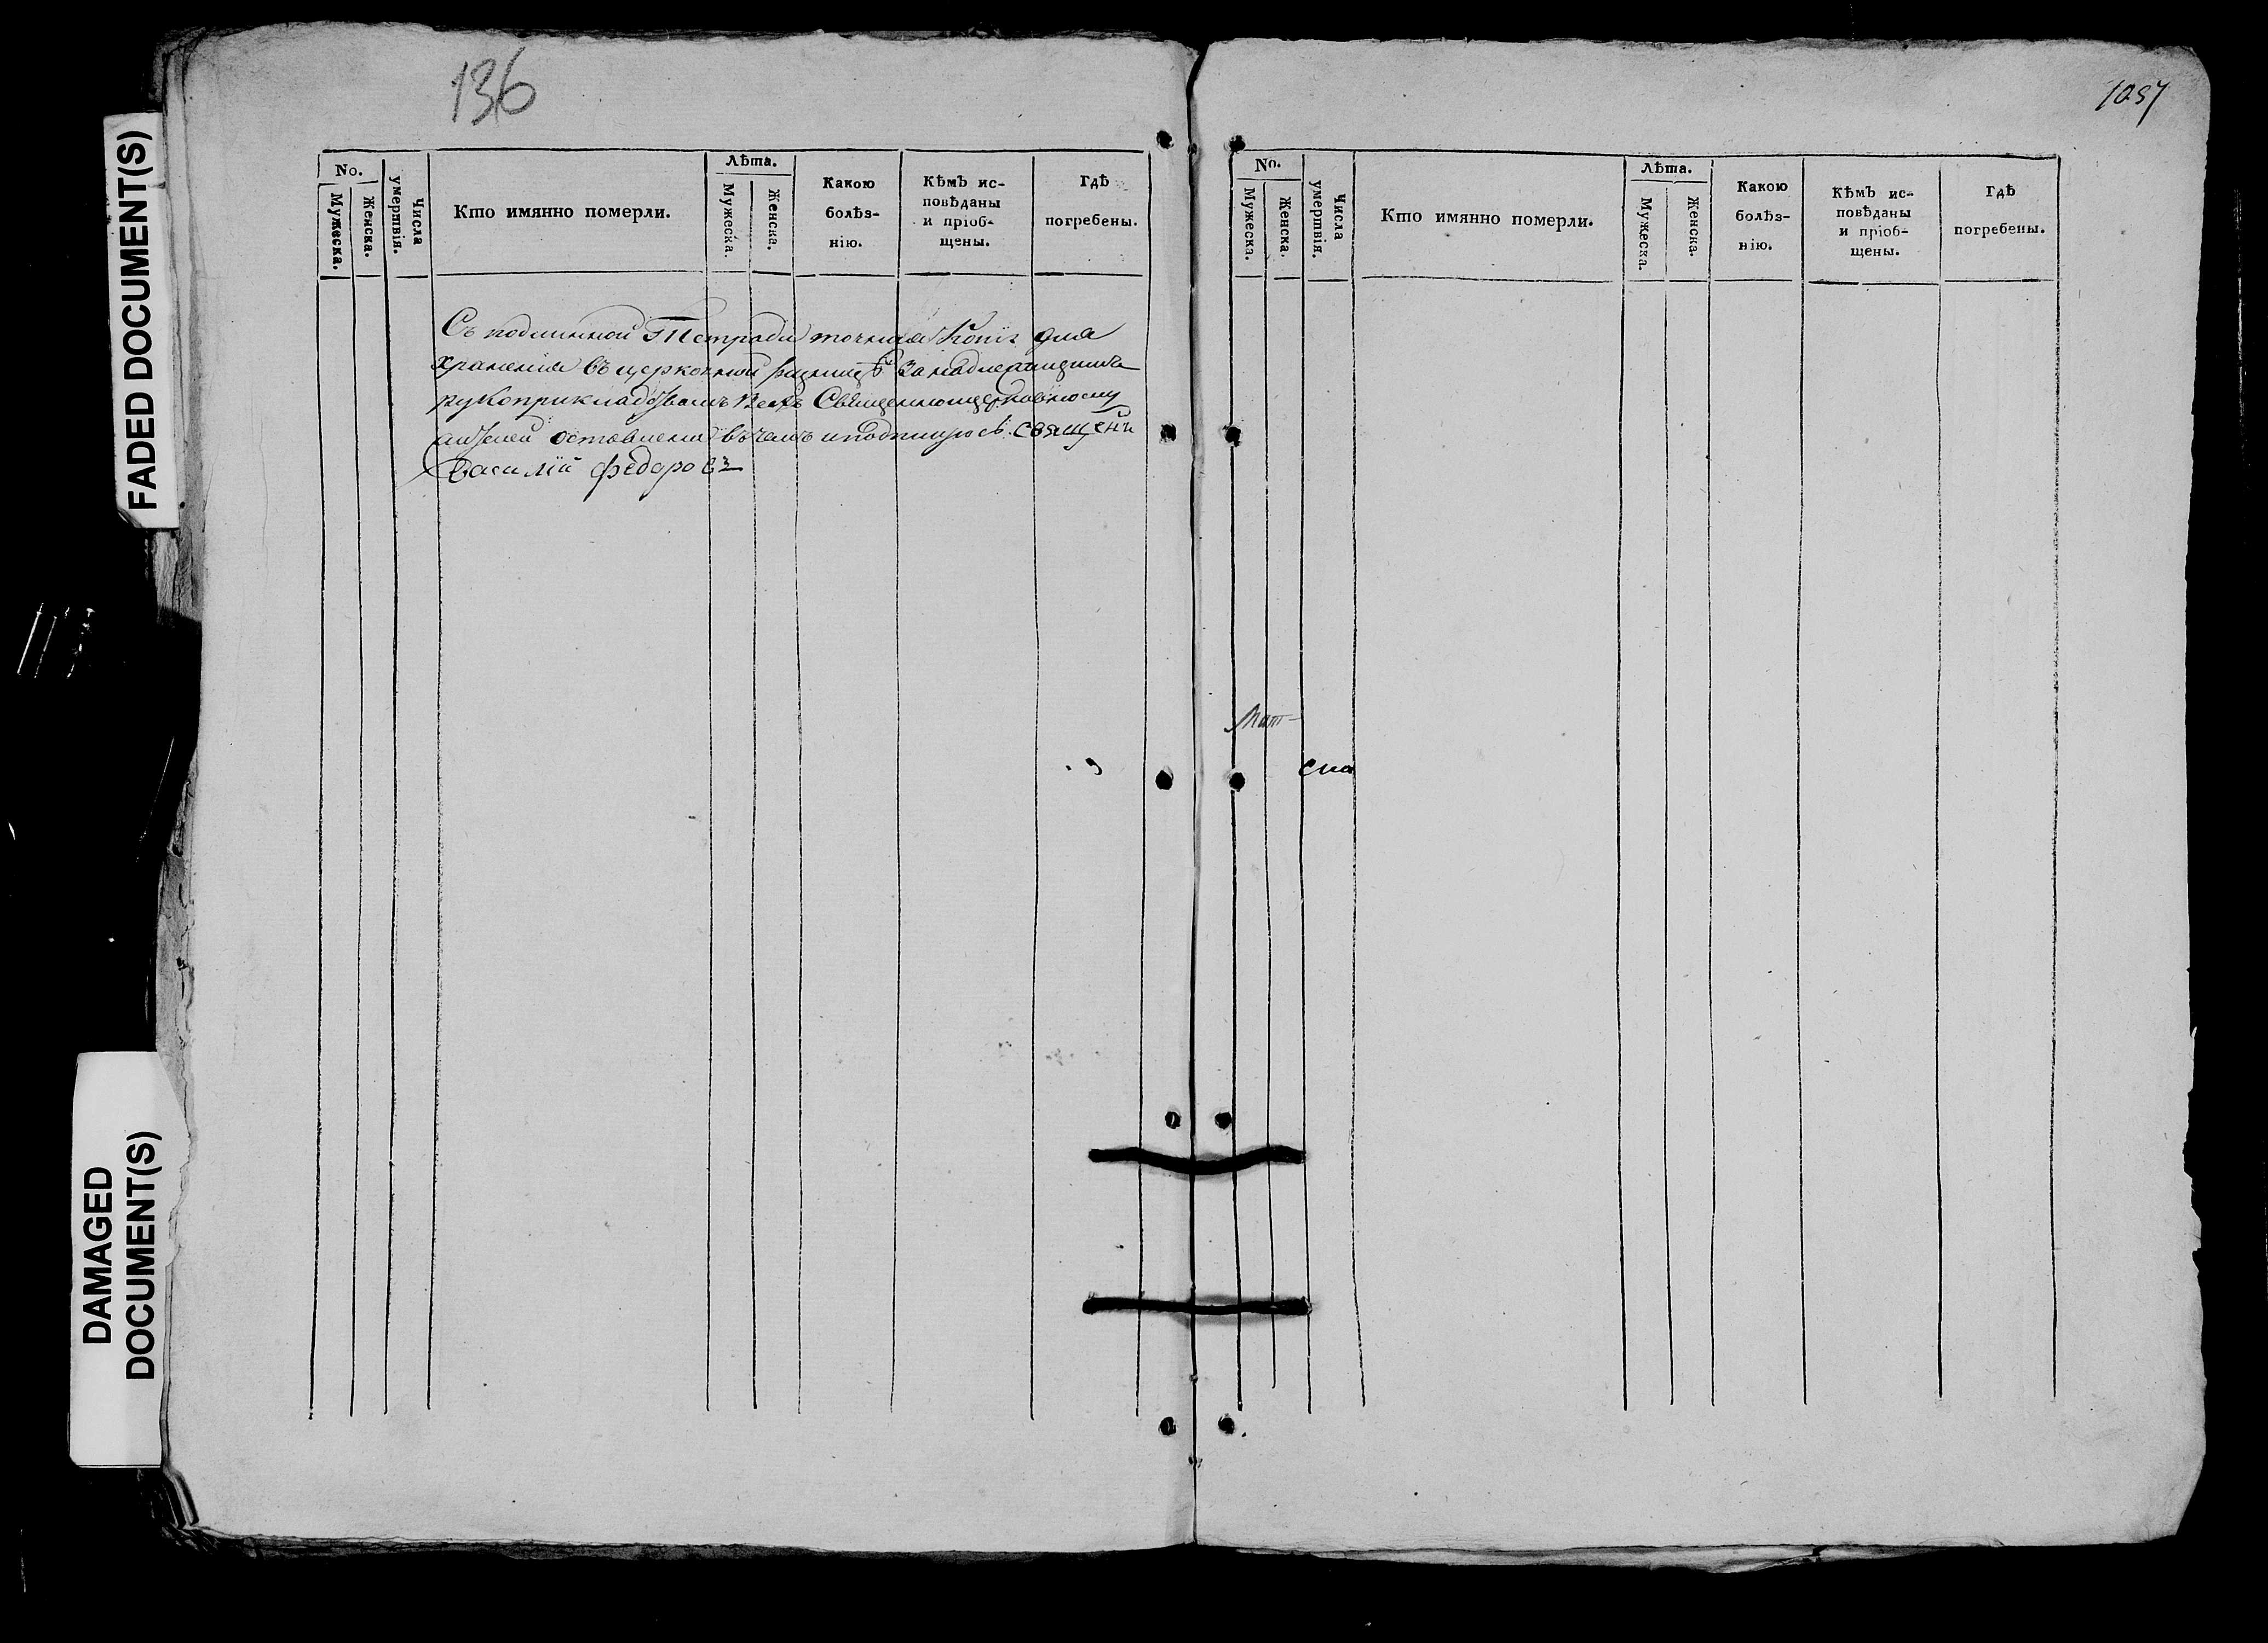 FADED DOCUMENT(S)
DAMAGED
DOCUMENT(S)
136
No.
Мужеска.
Женска.
Числа
умертвія.
Кто имянно померли.
Лѣта.
Мужеска.
Женска.
Какою
болѣз-
нію.
Кѣмъ ис-
повѣданы
и пріоб-
щены.
Гдѣ
погребены.
Съ подлинной Тетради точная Копія для
хранения въ церковной ризницѣ за надлежащимъ
рукоприкладствамъ всехъ Священноцерковно
оставлена в чемъ и подпишуюсь свящѣнъ
Василий федоровъ
1057
No.
Мужеска.
Женска.
Числа
умертвія.
Кто имянно померли.
Лѣта.
Мужеска.
Женска.
Какою
болѣз-
нію.
Кѣмъ ис-
повѣданы
и пріоб-
щены.
Гдѣ
погребены.